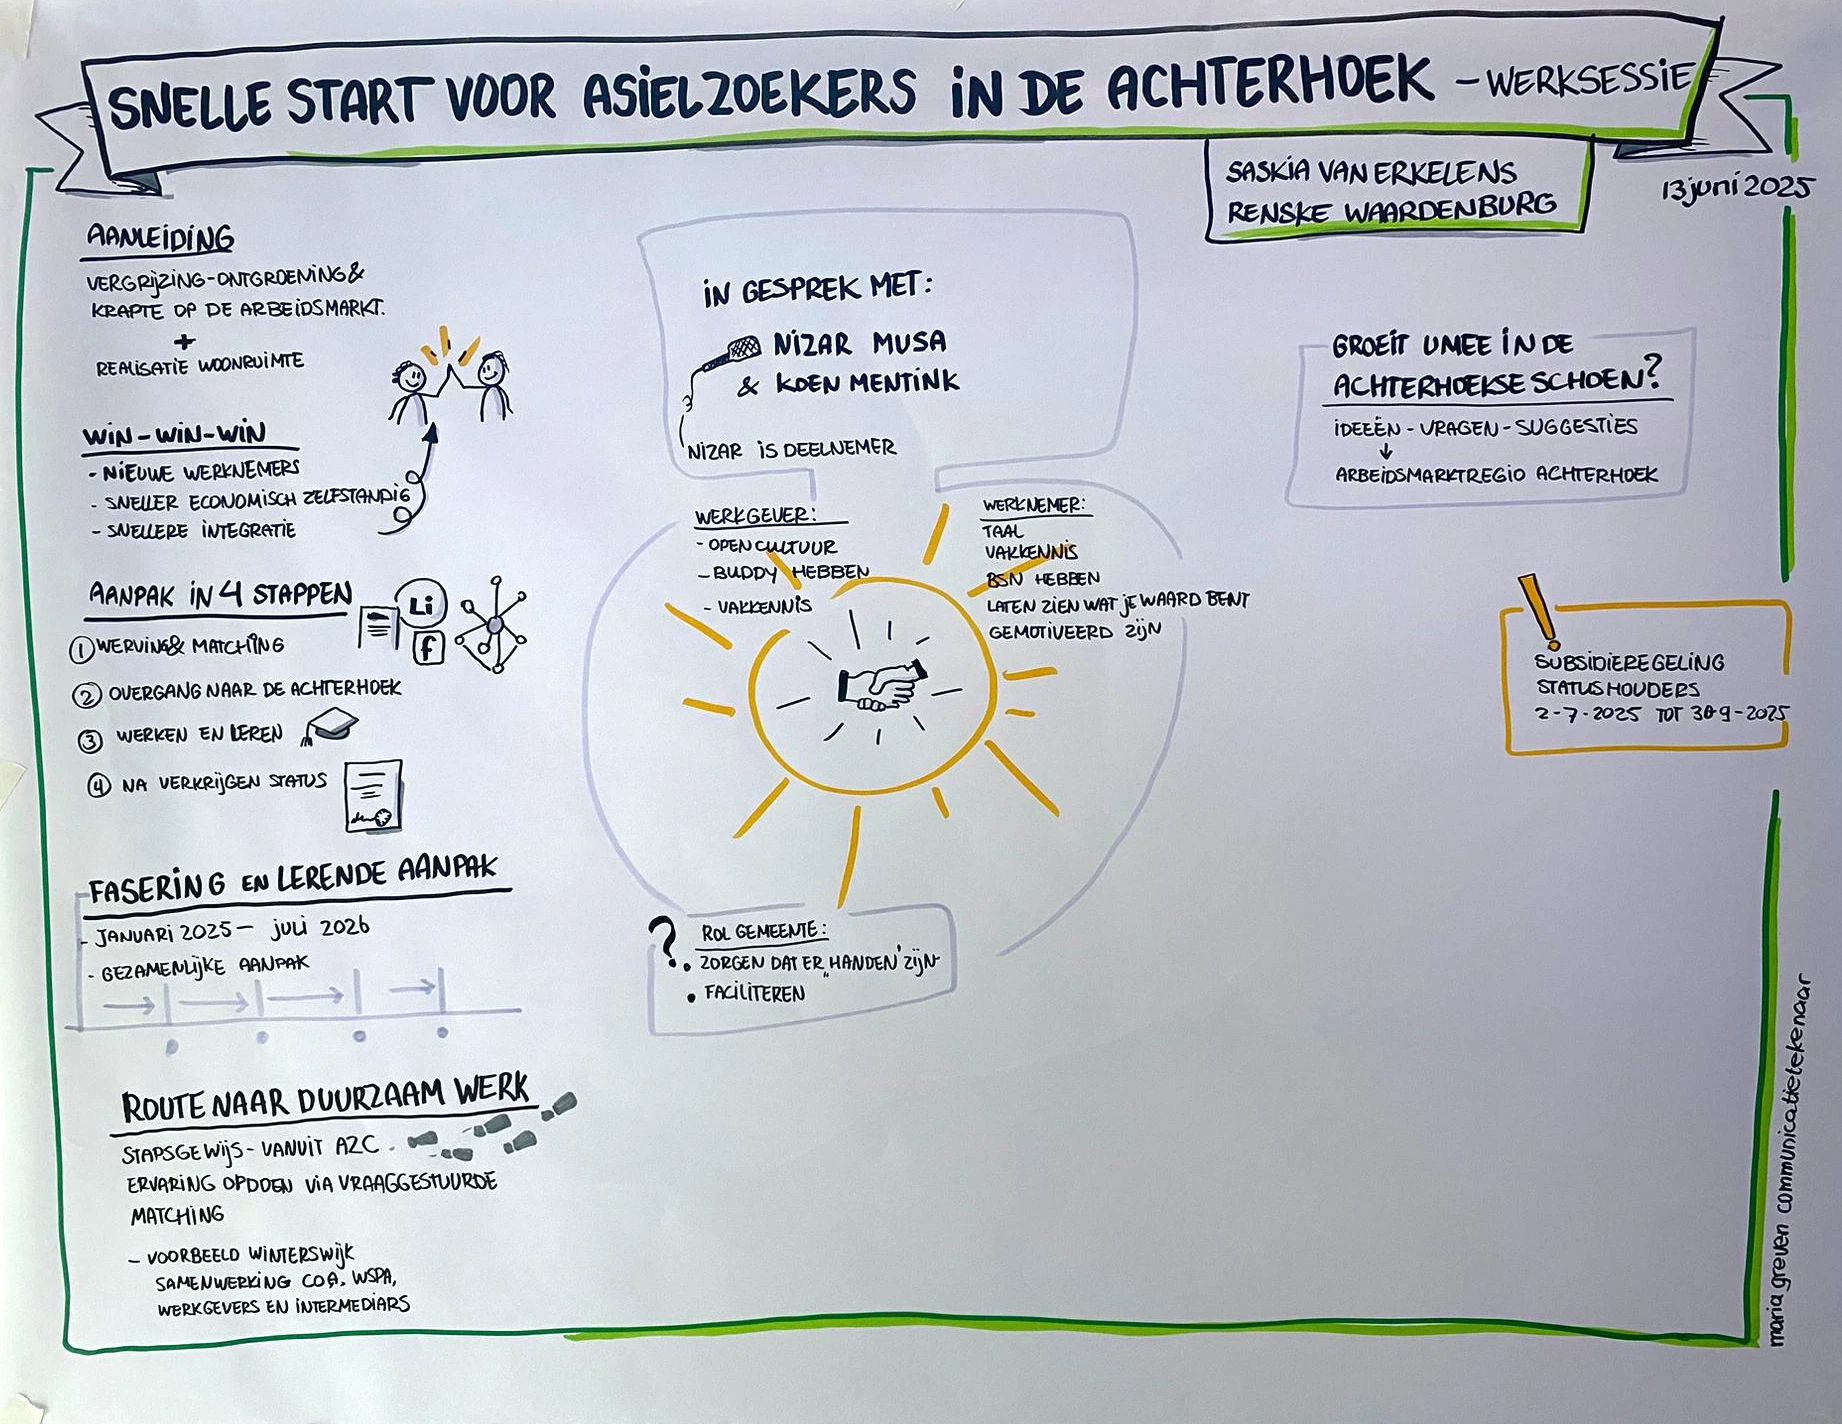 SNELLE START VOOR ASIELZOEKERS IN DE ACHTERHOEK - WERKSESSIE
SASKIA VAN ERKELENS
RENSKE WAARDENBURG
13 juni 2025
AANLEIDING
VERGRIJZING-ONTGROENING &
KRAPTE OP DE ARBEIDSMARKT.
+
REALISATIE WOONRUIMTE
WIN-WIN-WIN
- NIEUWE WERKNEMERS
- SNELLER ECONOMISCH ZELFSTANDIG
- SNELLERE INTEGRATIE
AANPAK IN 4 STAPPEN
Li
f
1 WERVING & MATCHING
2 OVERGANG NAAR DE ACHTERHOEK
3 WERKEN EN LEREN
4 NA VERKRIJGEN STATUS
FASERING EN LERENDE AANPAK
- JANUARI 2025 - juli 2026
- GEZAMENLIJKE AANPAK
ROUTE NAAR DUURZAAM WERK
STAPSGEWIJS - VANUIT AZC.
ERVARING OPDOEN VIA VRAAGGESTUURDE
MATCHING
- VOORBEELD WINTERSWIJK
SAMENWERKING COA, WSPA,
WERKGEVERS EN INTERMEDIARS
IN GESPREK MET:
NIZAR MUSA
& KOEN MENTINK
NIZAR IS DEELNEMER
WERKGEVER:
- OPEN CULTUUR
- BUDDY HEBBEN
- VAKKENNIS
WERKNEMER:
TAAL
VAKKENNIS
BSN HEBBEN
LATEN ZIEN WAT JE WAARD BENT
GEMOTIVEERD ZIJN
? ROL GEMEENTE:
• ZORGEN DAT ER „HANDEN' ZIJN
• FACILITEREN
GROEIT U MEE IN DE
ACHTERHOEKSE SCHOEN?
IDEEËN - VRAGEN - SUGGESTIES
↓
ARBEIDSMARKTREGIO ACHTERHOEK
!
SUBSIDIEREGELING
STATUSHOUDERS
2-7-2025 TOT 30-9-2025
maria greven communicatietekenaar